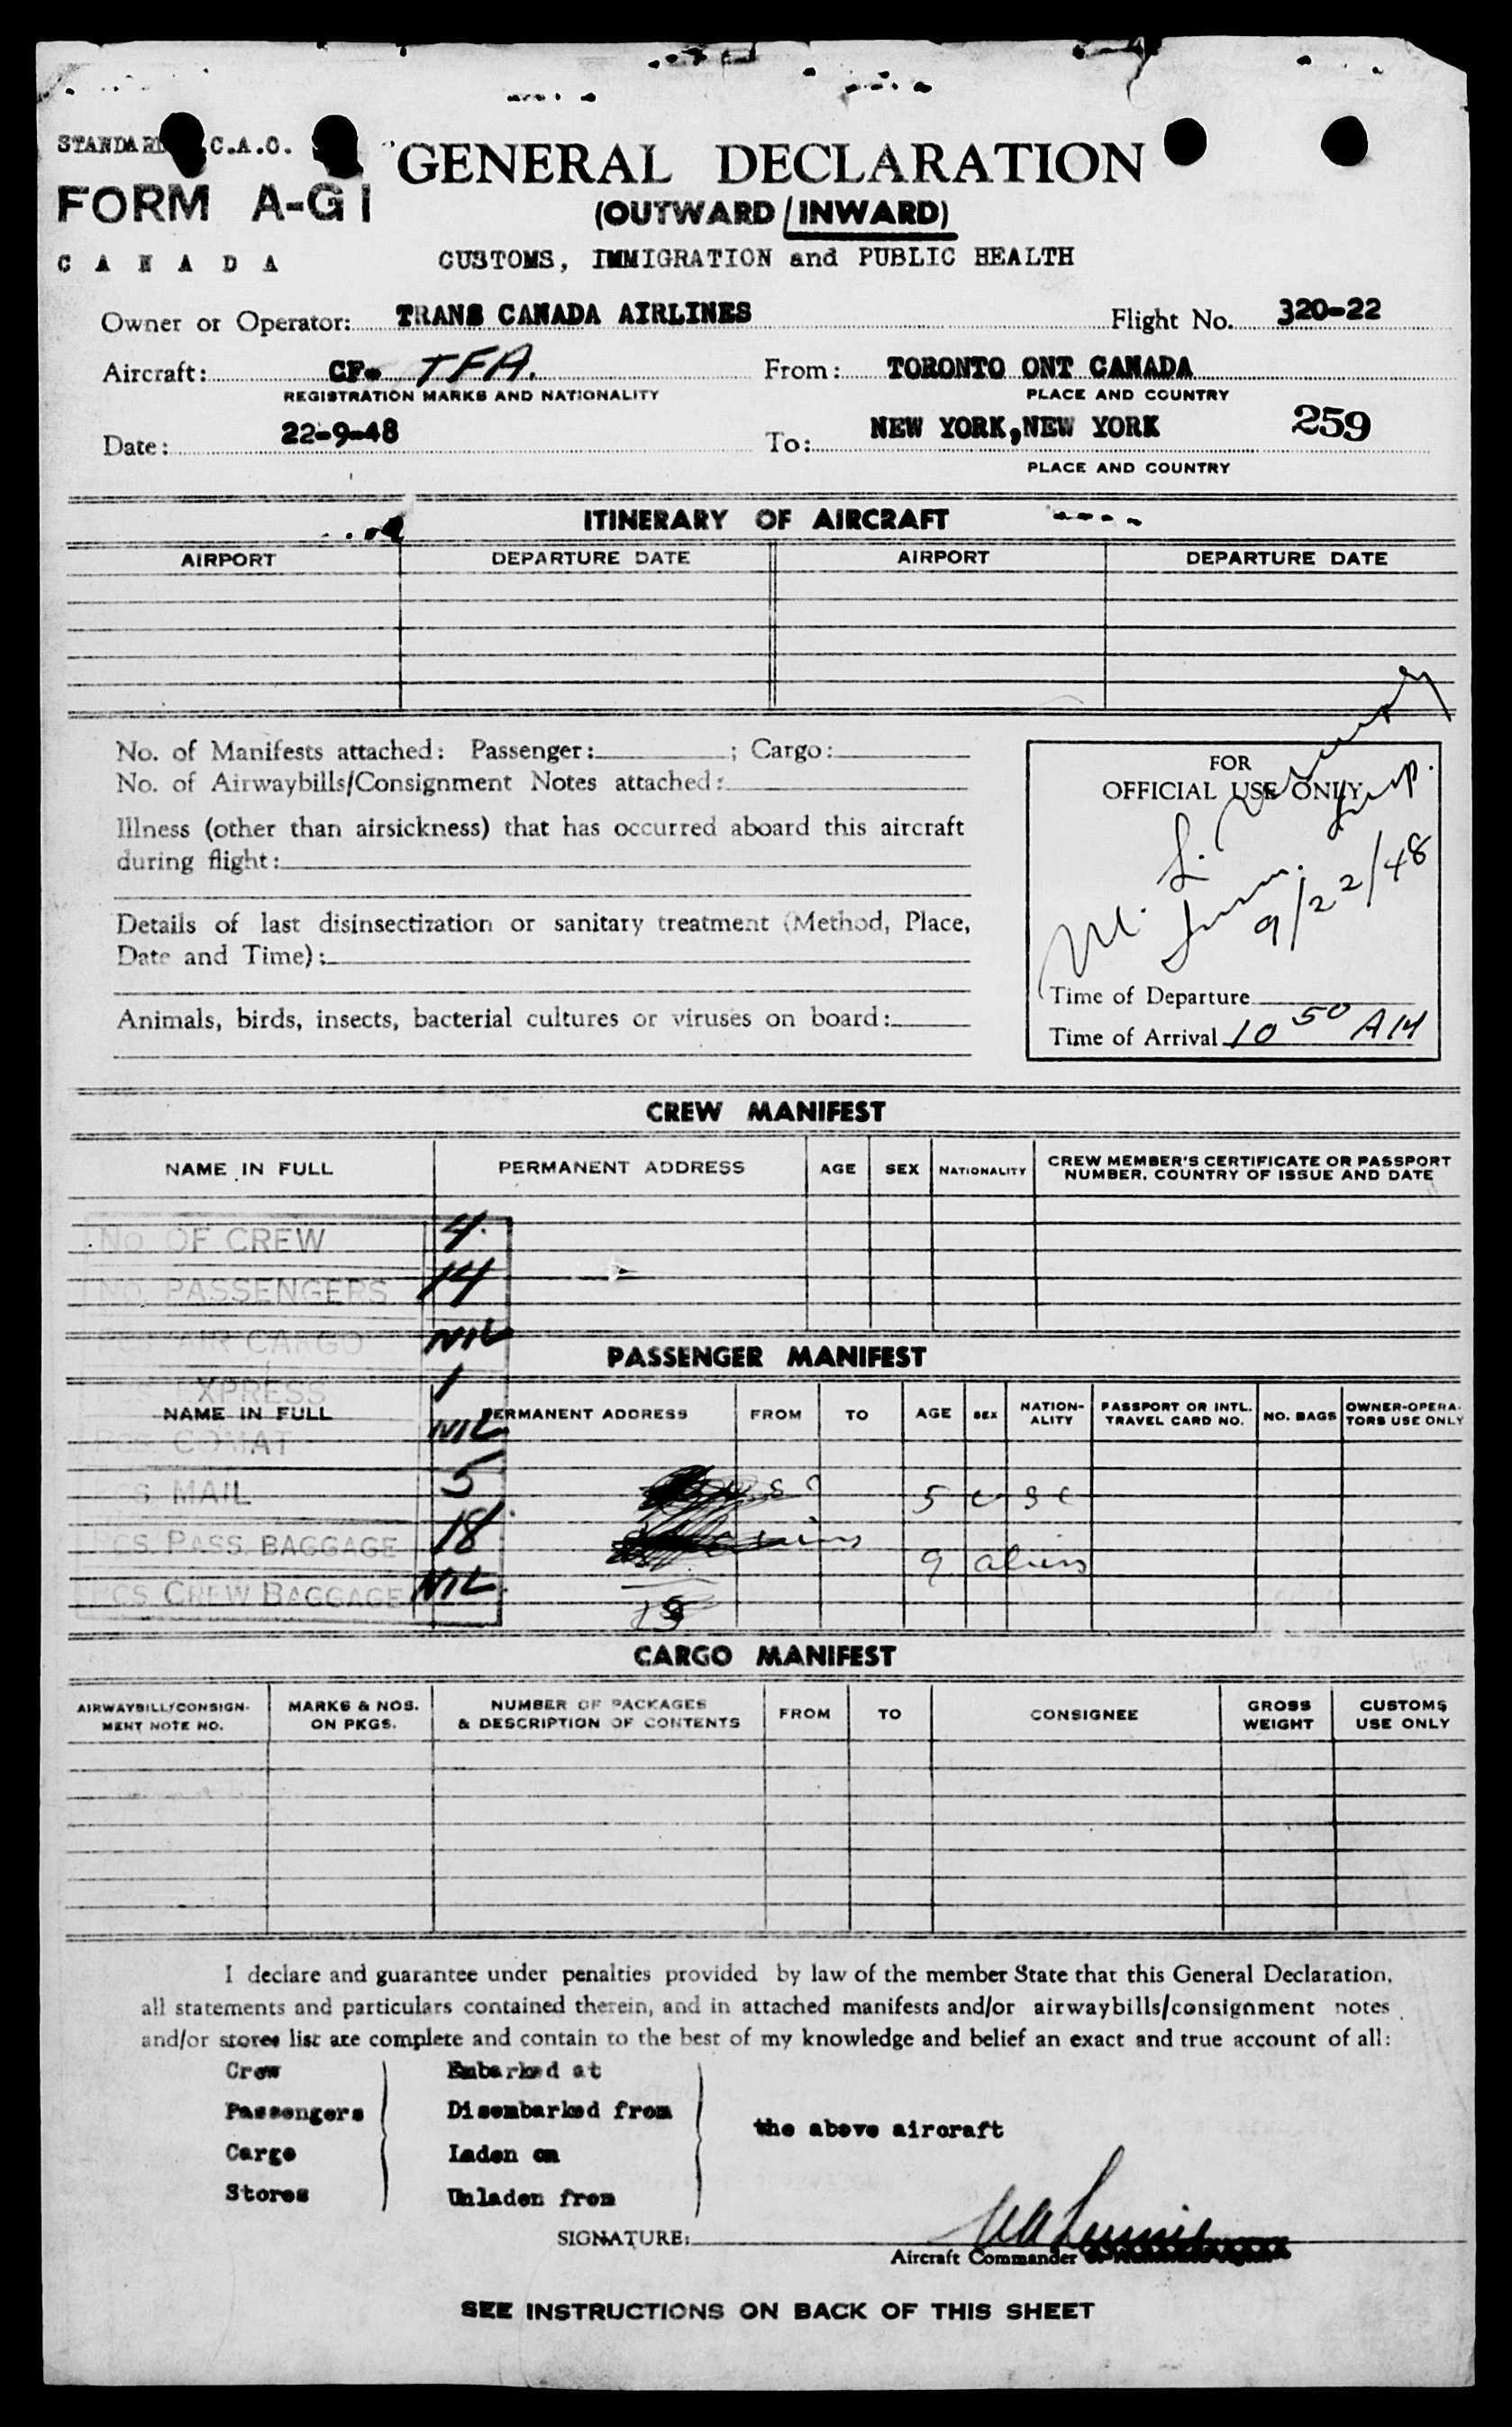 STANDARD I.C.A.O.
FORM A-G1
CANADA
GENERAL DECLARATION
(OUTWARD/INWARD)
CUSTOMS, IMMIGRATION and PUBLIC HEALTH
Owner or Operator: TRANS CANADA AIRLINES Flight No. 320-22
Aircraft: CF- TFA. From: TORONTO ONT CANADA
REGISTRATION MARKS AND NATIONALITY PLACE AND COUNTRY
Date: 22-9-48 To: NEW YORK, NEW YORK 259
PLACE AND COUNTRY
ITINERARY OF AIRCRAFT
AIRPORT DEPARTURE DATE AIRPORT DEPARTURE DATE
No. of Manifests attached: Passenger: ; Cargo:
No. of Airwaybills/Consignment Notes attached:
Illness (other than airsickness) that has occurred aboard this aircraft
during flight:
Details of last disinsectization or sanitary treatment (Method, Place,
Date and Time):
Animals, birds, insects, bacterial cultures or viruses on board:
FOR
OFFICIAL USE ONLY
9/22/48
Time of Departure
Time of Arrival 10 50 AM
CREW MANIFEST
NAME IN FULL PERMANENT ADDRESS AGE SEX NATIONALITY CREW MEMBER'S CERTIFICATE OR PASSPORT
NUMBER, COUNTRY OF ISSUE AND DATE
No. OF CREW 4
No. PASSENGERS 14
PCS AIR CARGO NIL
PASSENGER MANIFEST
EXPRESS 1
NAME IN FULL PERMANENT ADDRESS FROM TO AGE SEX NATION-
ALITY PASSPORT OR INTL.
TRAVEL CARD NO. NO. BAGS OWNER-OPERA-
TORS USE ONLY
PCS. COMAT NIL
PCS MAIL 5
5 USC
PCS. PASS. BAGGAGE 18
9 aliens
PCS CREW BAGGAGE NIL
CARGO MANIFEST
AIRWAYBILL/CONSIGN-
MENT NOTE NO. MARKS & NOS.
ON PKGS. NUMBER OF PACKAGES
& DESCRIPTION OF CONTENTS FROM TO CONSIGNEE GROSS
WEIGHT CUSTOMS
USE ONLY
I declare and guarantee under penalties provided by law of the member State that this General Declaration,
all statements and particulars contained therein, and in attached manifests and/or airwaybills/consignment notes
and/or stores list are complete and contain to the best of my knowledge and belief an exact and true account of all:
Crew Embarked at
Passengers Disembarked from
the above aircraft
Cargo Laden on
Stores Unladen from
SIGNATURE:
Aircraft Commander
SEE INSTRUCTIONS ON BACK OF THIS SHEET